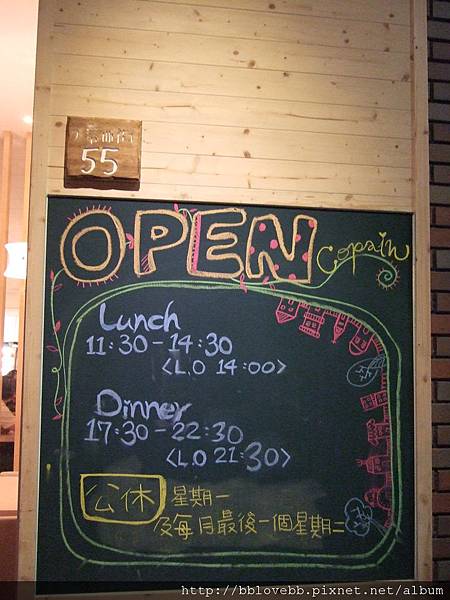 55
OPEN
Copain
Lunch
11:30-14:30
<L.O 14:00>
Dinner
17:30-22:30
<L.O 21:30>
公休 星期一
及每月最後一個星期二
http://bblovebb.pixnet.net/album